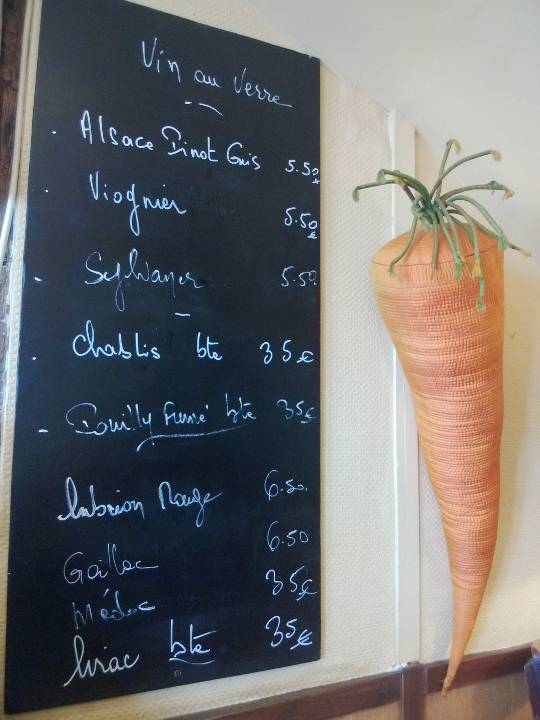 Vin au Verre
Alsace Pinot Gris 5.50€
Viognier 5.50€
Sylvaner 5.50.
Chablis bte 35€
Pouilly Fumé bte 35€
Rouge 6.50.
Gaillac 6.50
Médoc 35€
bte 35€